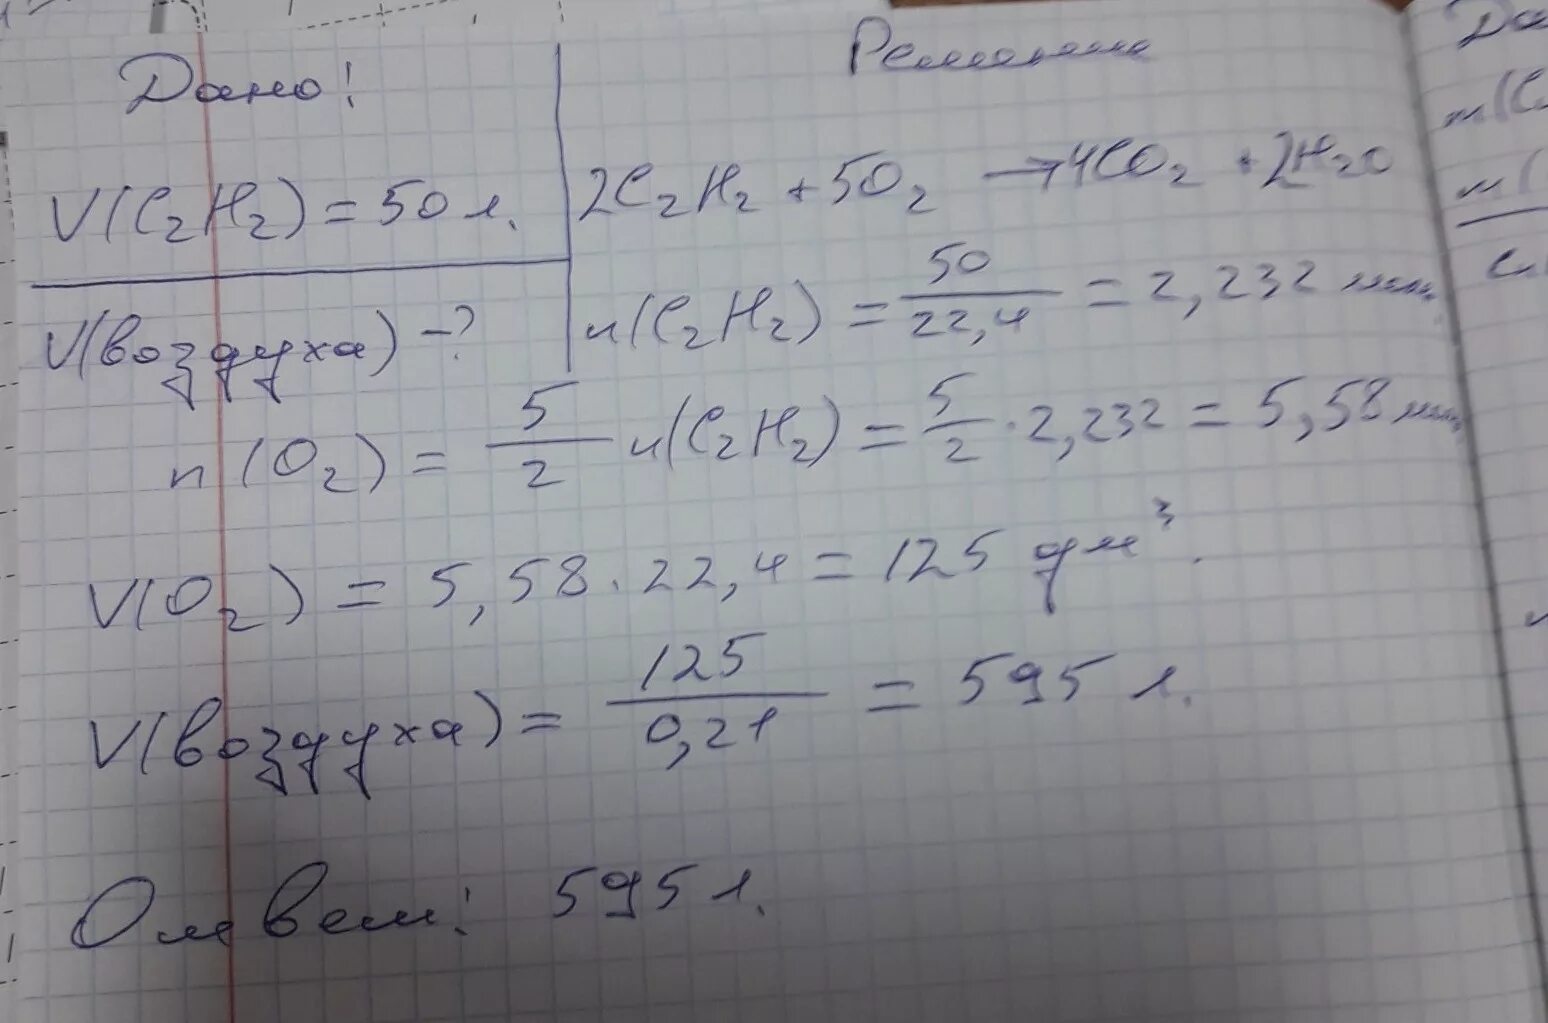 Дано!
V(C₂H₂) = 50 л.
V(воздуха) -?
Решение
2C₂H₂ + 5O₂ → 4CO₂ + 2H₂O
n(C₂H₂) = 50/22,4 = 2,232 моль
n(O₂) = 5/2 n(C₂H₂) = 5/2 · 2,232 = 5,58 моль
V(O₂) = 5,58 · 22,4 = 125 дм³.
V(воздуха) = 125/0,21 = 595 л.
Ответ: 595 л.
Да
m(C
m(